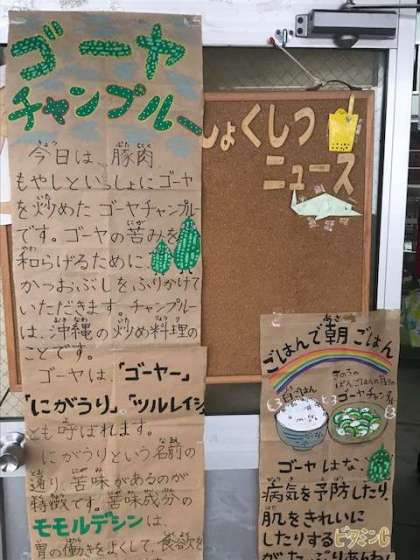 ゴーヤ
チャンプルー
今日は、豚肉
もやしといっしょにゴーヤ
を炒めた ゴーヤチャンプルー
です。ゴーヤの苦みを
和らげるために
かつおぶしをふりかけて
いただきます。チャンプルー
は、沖縄の炒め料理の
ことです。
ゴーヤは、「ゴーヤー」
「にがうり」。「ツルレイシ
とも呼ばれます。
にがうりという名前の
通り、苦味があるのが
特徴です。苦味成分の
モモルデシンは、
胃の働きをよくして、食欲を
しょくしつ
ニュース
ごはんで朝ごはん
白ごはん
ゴーヤチャンプル
ゴーヤはな、
病気を予防したり、
肌をきれいに
したりするビタミンC